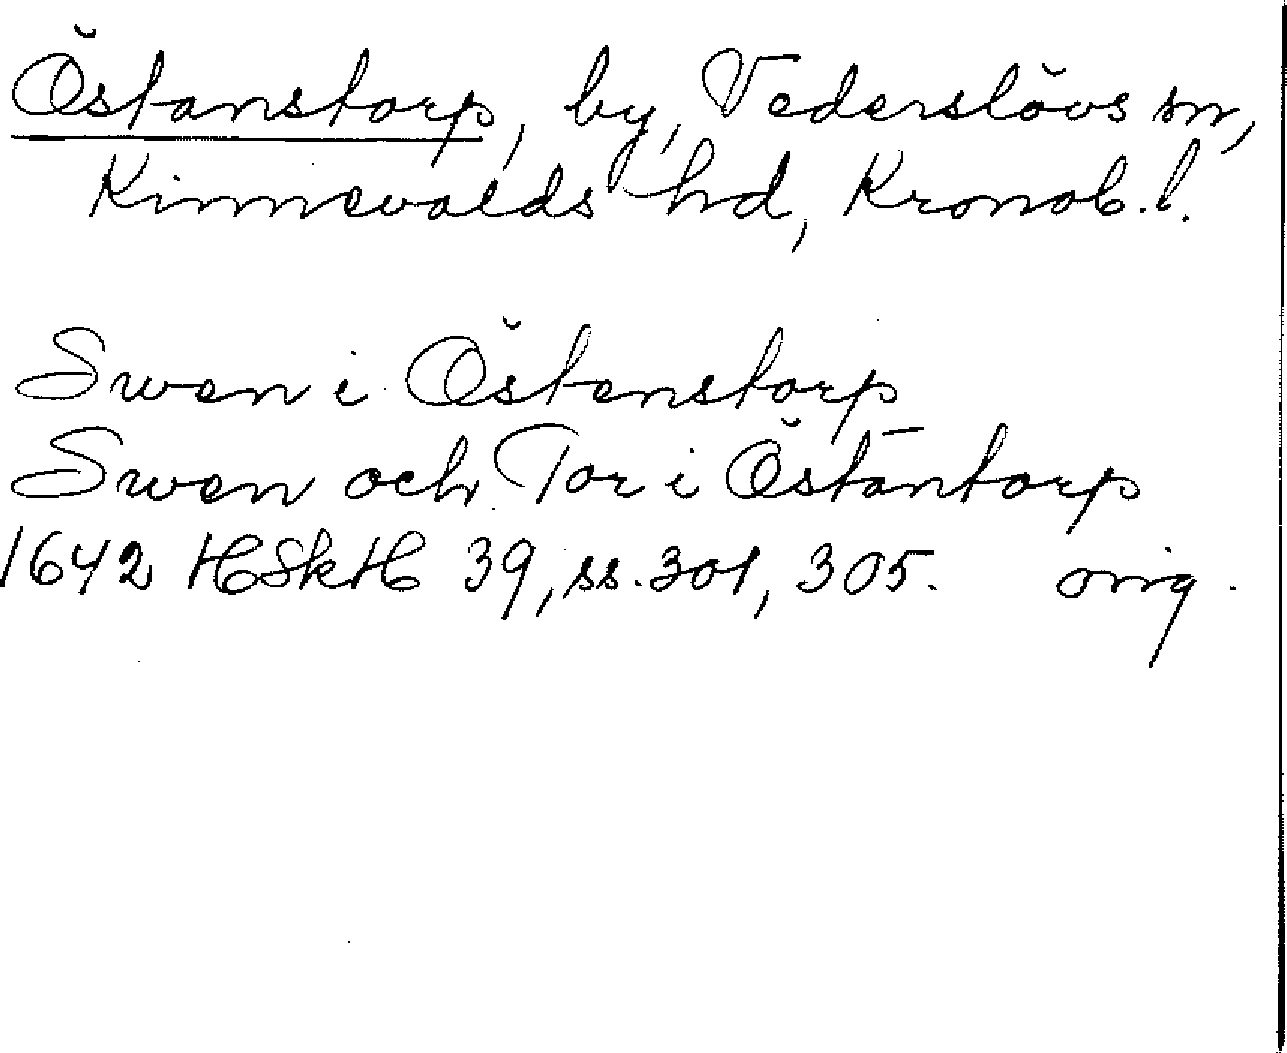 Östanstorp, by, Vederslövs sn,
Kinnevalds hd, Kronob. l.
Swen i Östenstorp
Swen och Tor i Östantorp
1642 HSkH 39, ss. 301, 305. orig.